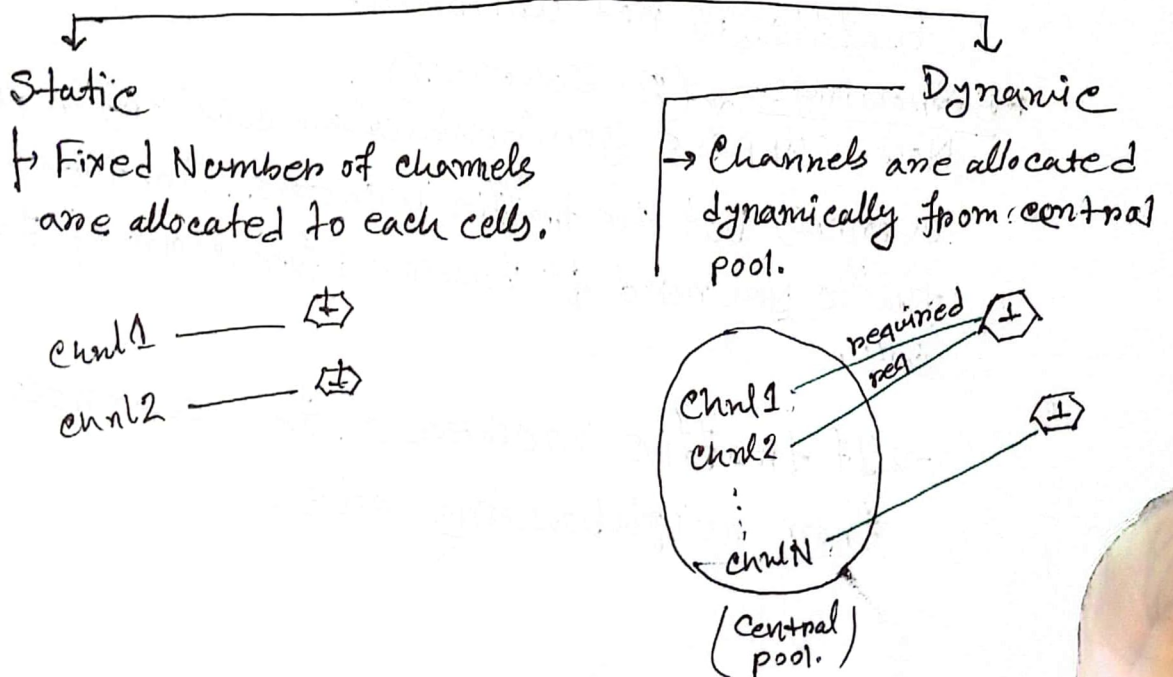 Static
Fixed Number of channels
are allocated to each cells.
chnl1
chnl2
Dynamic
→ Channels are allocated
dynamically from central
pool.
required
req
Chnl1
Chnl2
chnlN
(Central
pool.)